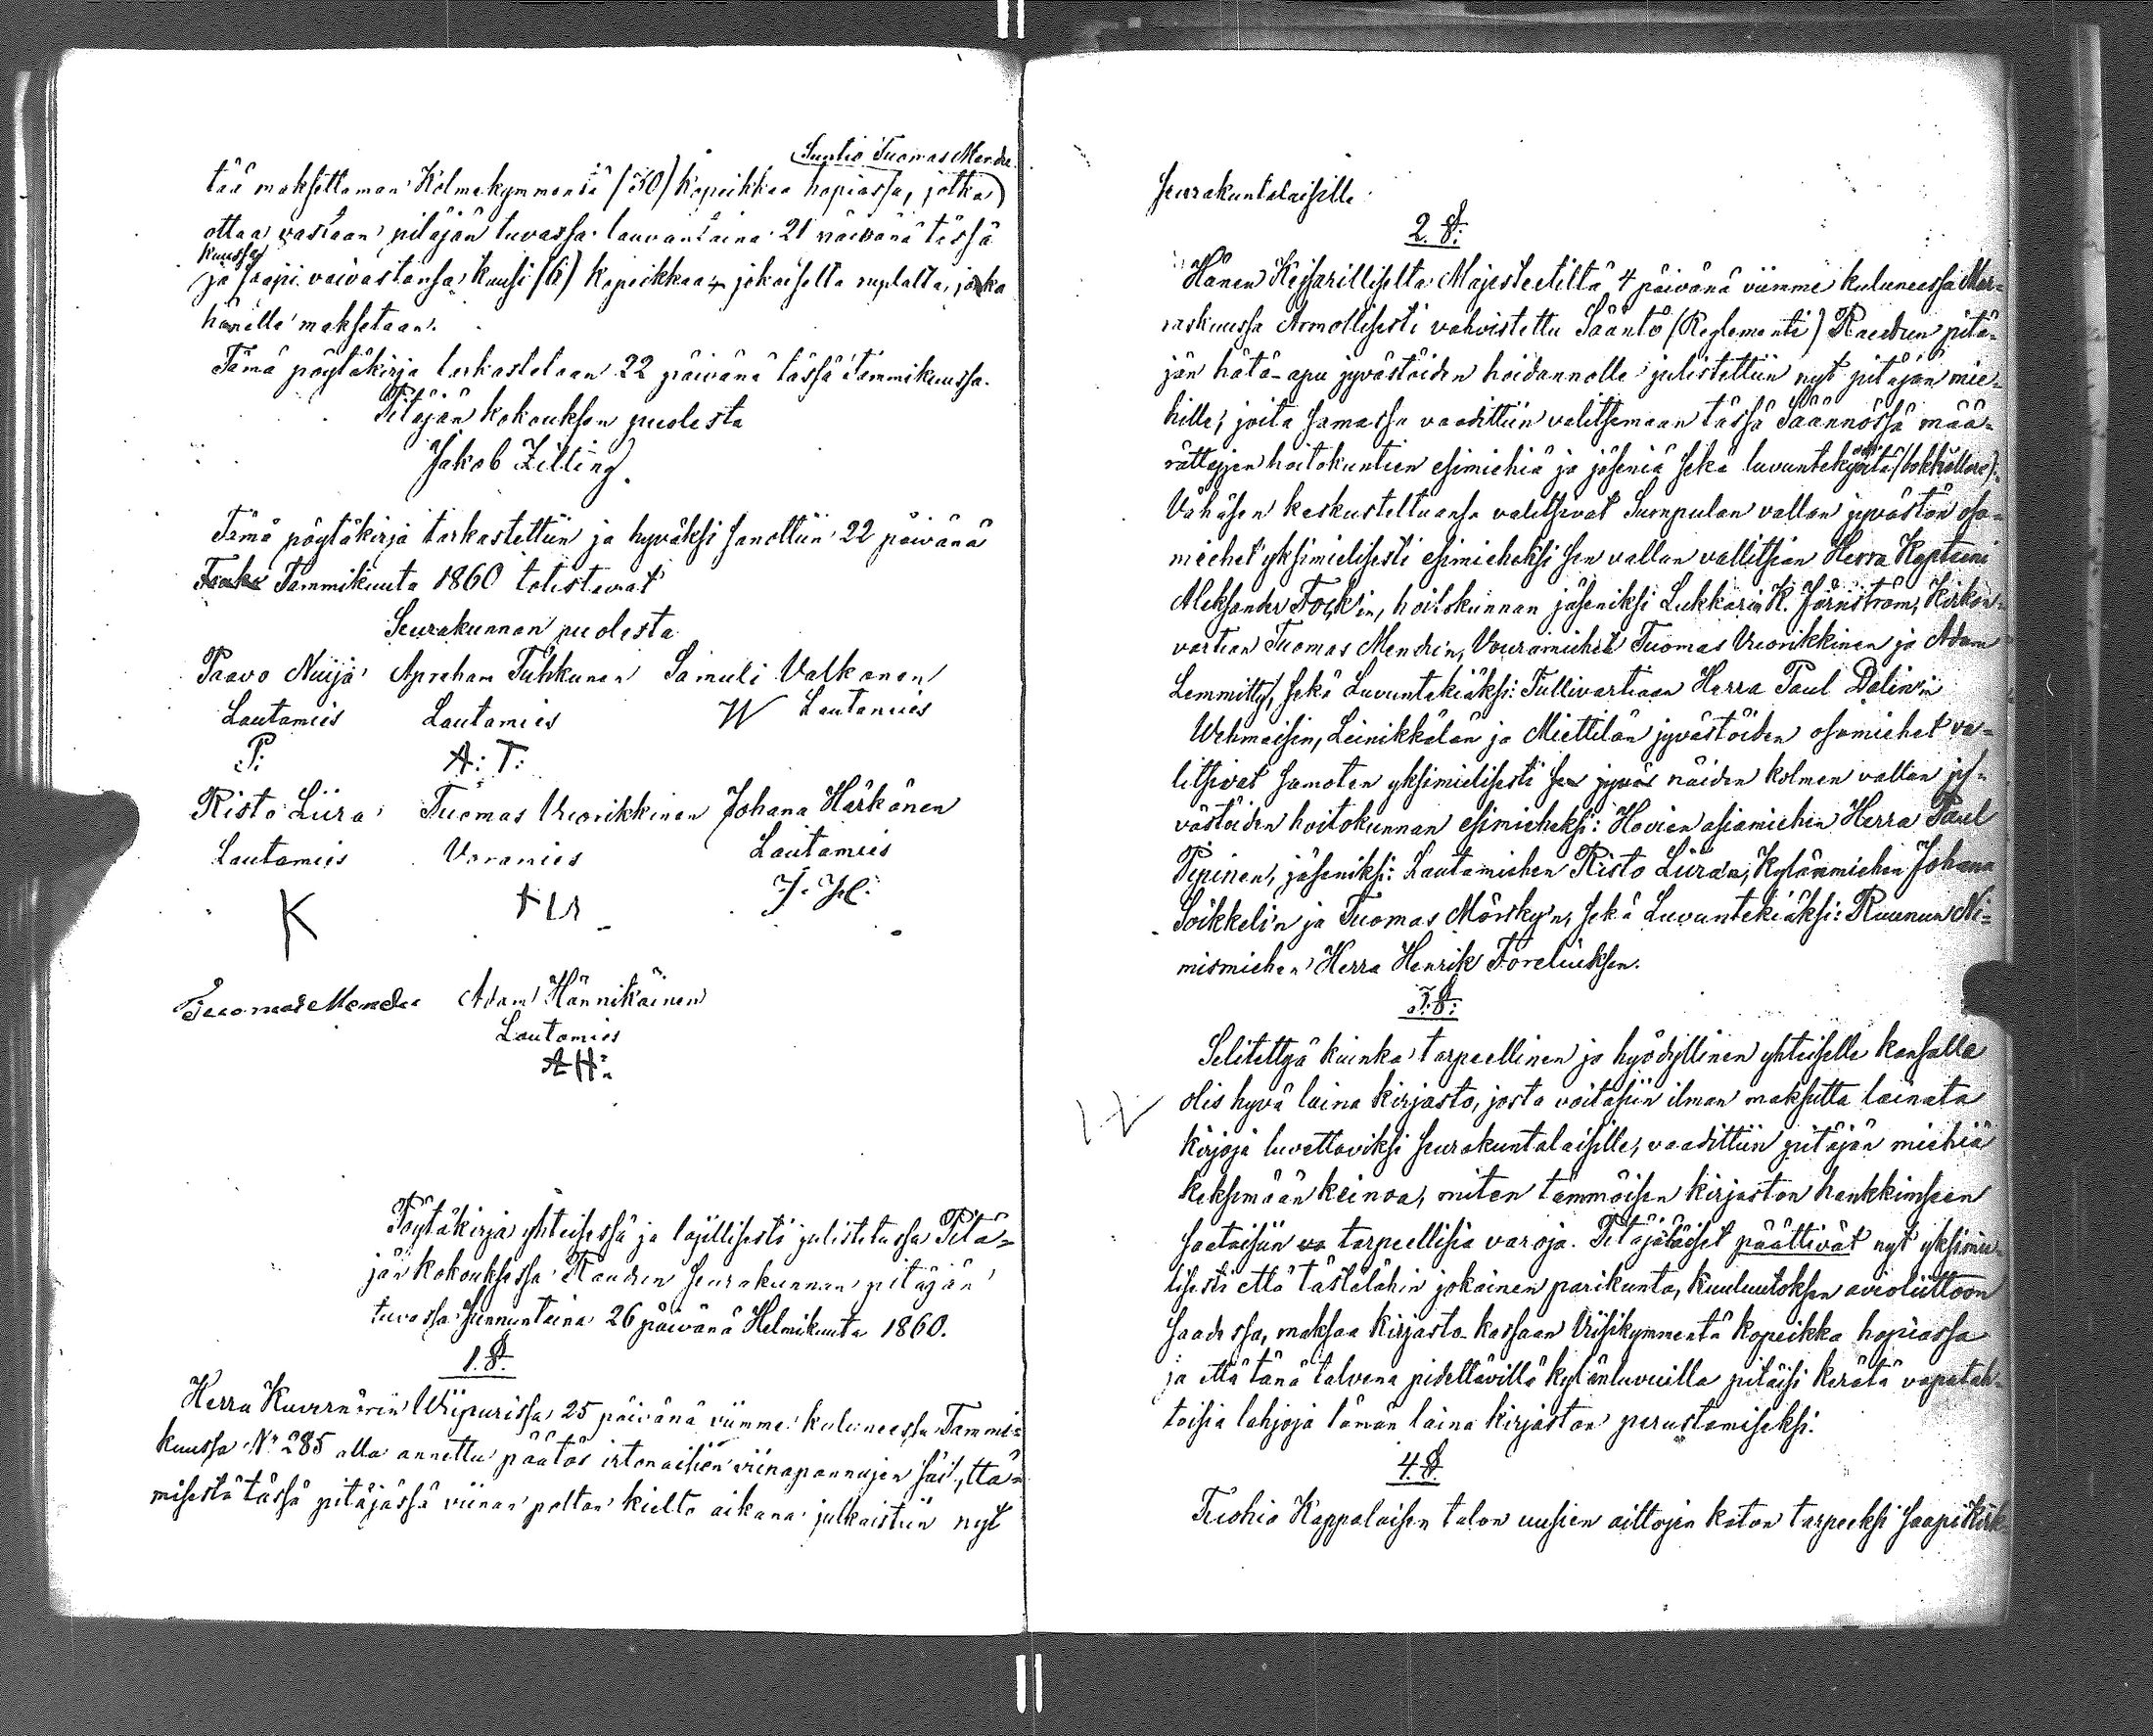 Suntio Tuomas Mendre
tää maksettaman Kolmekymmentä (30) kopeikkaa hopiassa, jotka
ottaa vastaan pitäjän tuvassa lauvantaina 21 päivänä tässä
kuussa
ja saapi vaivastansa kuusi (6) kopeikkaa jokaiselta ruplalta, joka
hänelle maksetaan.
Tämä pöytäkirja tarkastetaan 22 päivänä tässä Tammikuussa.
Pitäjän kokouksen puolesta
Jakob Zilling.
Tämä pöytäkirja tarkastettiin ja hyväksi sanottiin 22 päivänä
Tammikuuta 1860 todistavat
Seurakunnan puolesta
Paavo Nuija Apraham Tuhkunen Samuli Valkonen
Lautamies Lautamies W Lautamies
P. A: T:
Risto Liira Tuomas Vuorikkinen Johana Härkönen
Lautamies Voramies Lautamies
K J. H.
Tuomas Mendre Adam Hännikäinen
Lautamies
AH:
Pöytäkirja yhteisessä ja laillisesti julistetussa Pitä=
jän kokouksessa Raudun seurakunnan pitäjän
tuvassa sunnuntaina 26 päivänä Helmikuuta 1860.
1. §.
Herra Kuvernörin Wiipurissa 25 päivänä viimme kuluneessa Tammi=
kuussa No 285 alla annettu päätös irtonaisien viinapannujen säilyttä=
misestä tässä pitäjässä viinan polton kielto aikana julkaistiin nyt
seurakuntalaisille.
2. §:
Hänen Keisarilliselta Majesteetiltä 4 päivänä viimme kuluneessa Mar=
raskuussa Armollisesti vahvistettu Sääntö (Reglementi) Raudun pitä=
jän hätä-apu jyvästöiden hoidannolle julistettiin nyt pitäjän mie=
hille; joita samassa vaadittiin valitsemaan tässä Säännössä mää=
rättyjen hoitokuntien esimiehiä ja jäseniä sekä luvuntekijöitä (bokhållare).
Vähäsen keskusteltuansa valitsivat Sumpulan vallan jyvästön osa=
miehet yksimielisesti esimieheksi sen vallan vallitsian Herra Kapteeni
Aleksander Fock'in, hoitokunnan jäseniksi Lukkarin K. Jernström, Kirkon=
vartian Tuomas Mendrein, Vouramiehet Tuomas Vuorikkinen ja Adam
Lemmitty, sekä Luvuntekiäksi: Tullivartiaan Herra Paul Dalin'in
Wehmaisin, Leinikkälän ja Miettilän jyvästöiden osamiehet va=
litsivat samoten yksimielisesti sen jyväs näiden kolmen vallan jy=
västöiden hoitokunnan esimieheksi: Hovien asiamiehen Herra Paul
Pipinen, jäseniksi: Lautamiehen Risto Liiran, Kylänmiehen Johana
Soikkeli'n ja Tuomas Mörsky'n, sekä Luvuntekiäksi: Ruunun Ni=
mismiehen Herra Henrik Foreliuksen.
3. §:
Selitettyä kuinka tarpeellinen ja hyödyllinen yhteiselle kansalle
olis hyvä laina kirjasto, josta voitaisiin ilman maksutta lainata
kirjoja luvettaviksi seurakuntalaisille, vaadittiin pitäjän miehiä
keksimään keinoa, miten tämmöisen kirjaston hankkimiseen
saataisiin va tarpeellisia varoja. Pitäjäläiset päättivät nyt yksimie=
lisesti että tästälähin jokainen parikunta, kuuluutoksen avioliittoon
saadessa, maksaa kirjasto-kassaan Viisikymmentä kopeikka hopiassa
ja että tänä talvena pidettävillä kylänluvuilla pitäisi kerätä vapatah=
toisia lahjoja tämän laina kirjaston perustamiseksi.
4. §.
Tuohia Kappalaisen talon uusien aittojen katon tarpeeksi saapi Kirk=